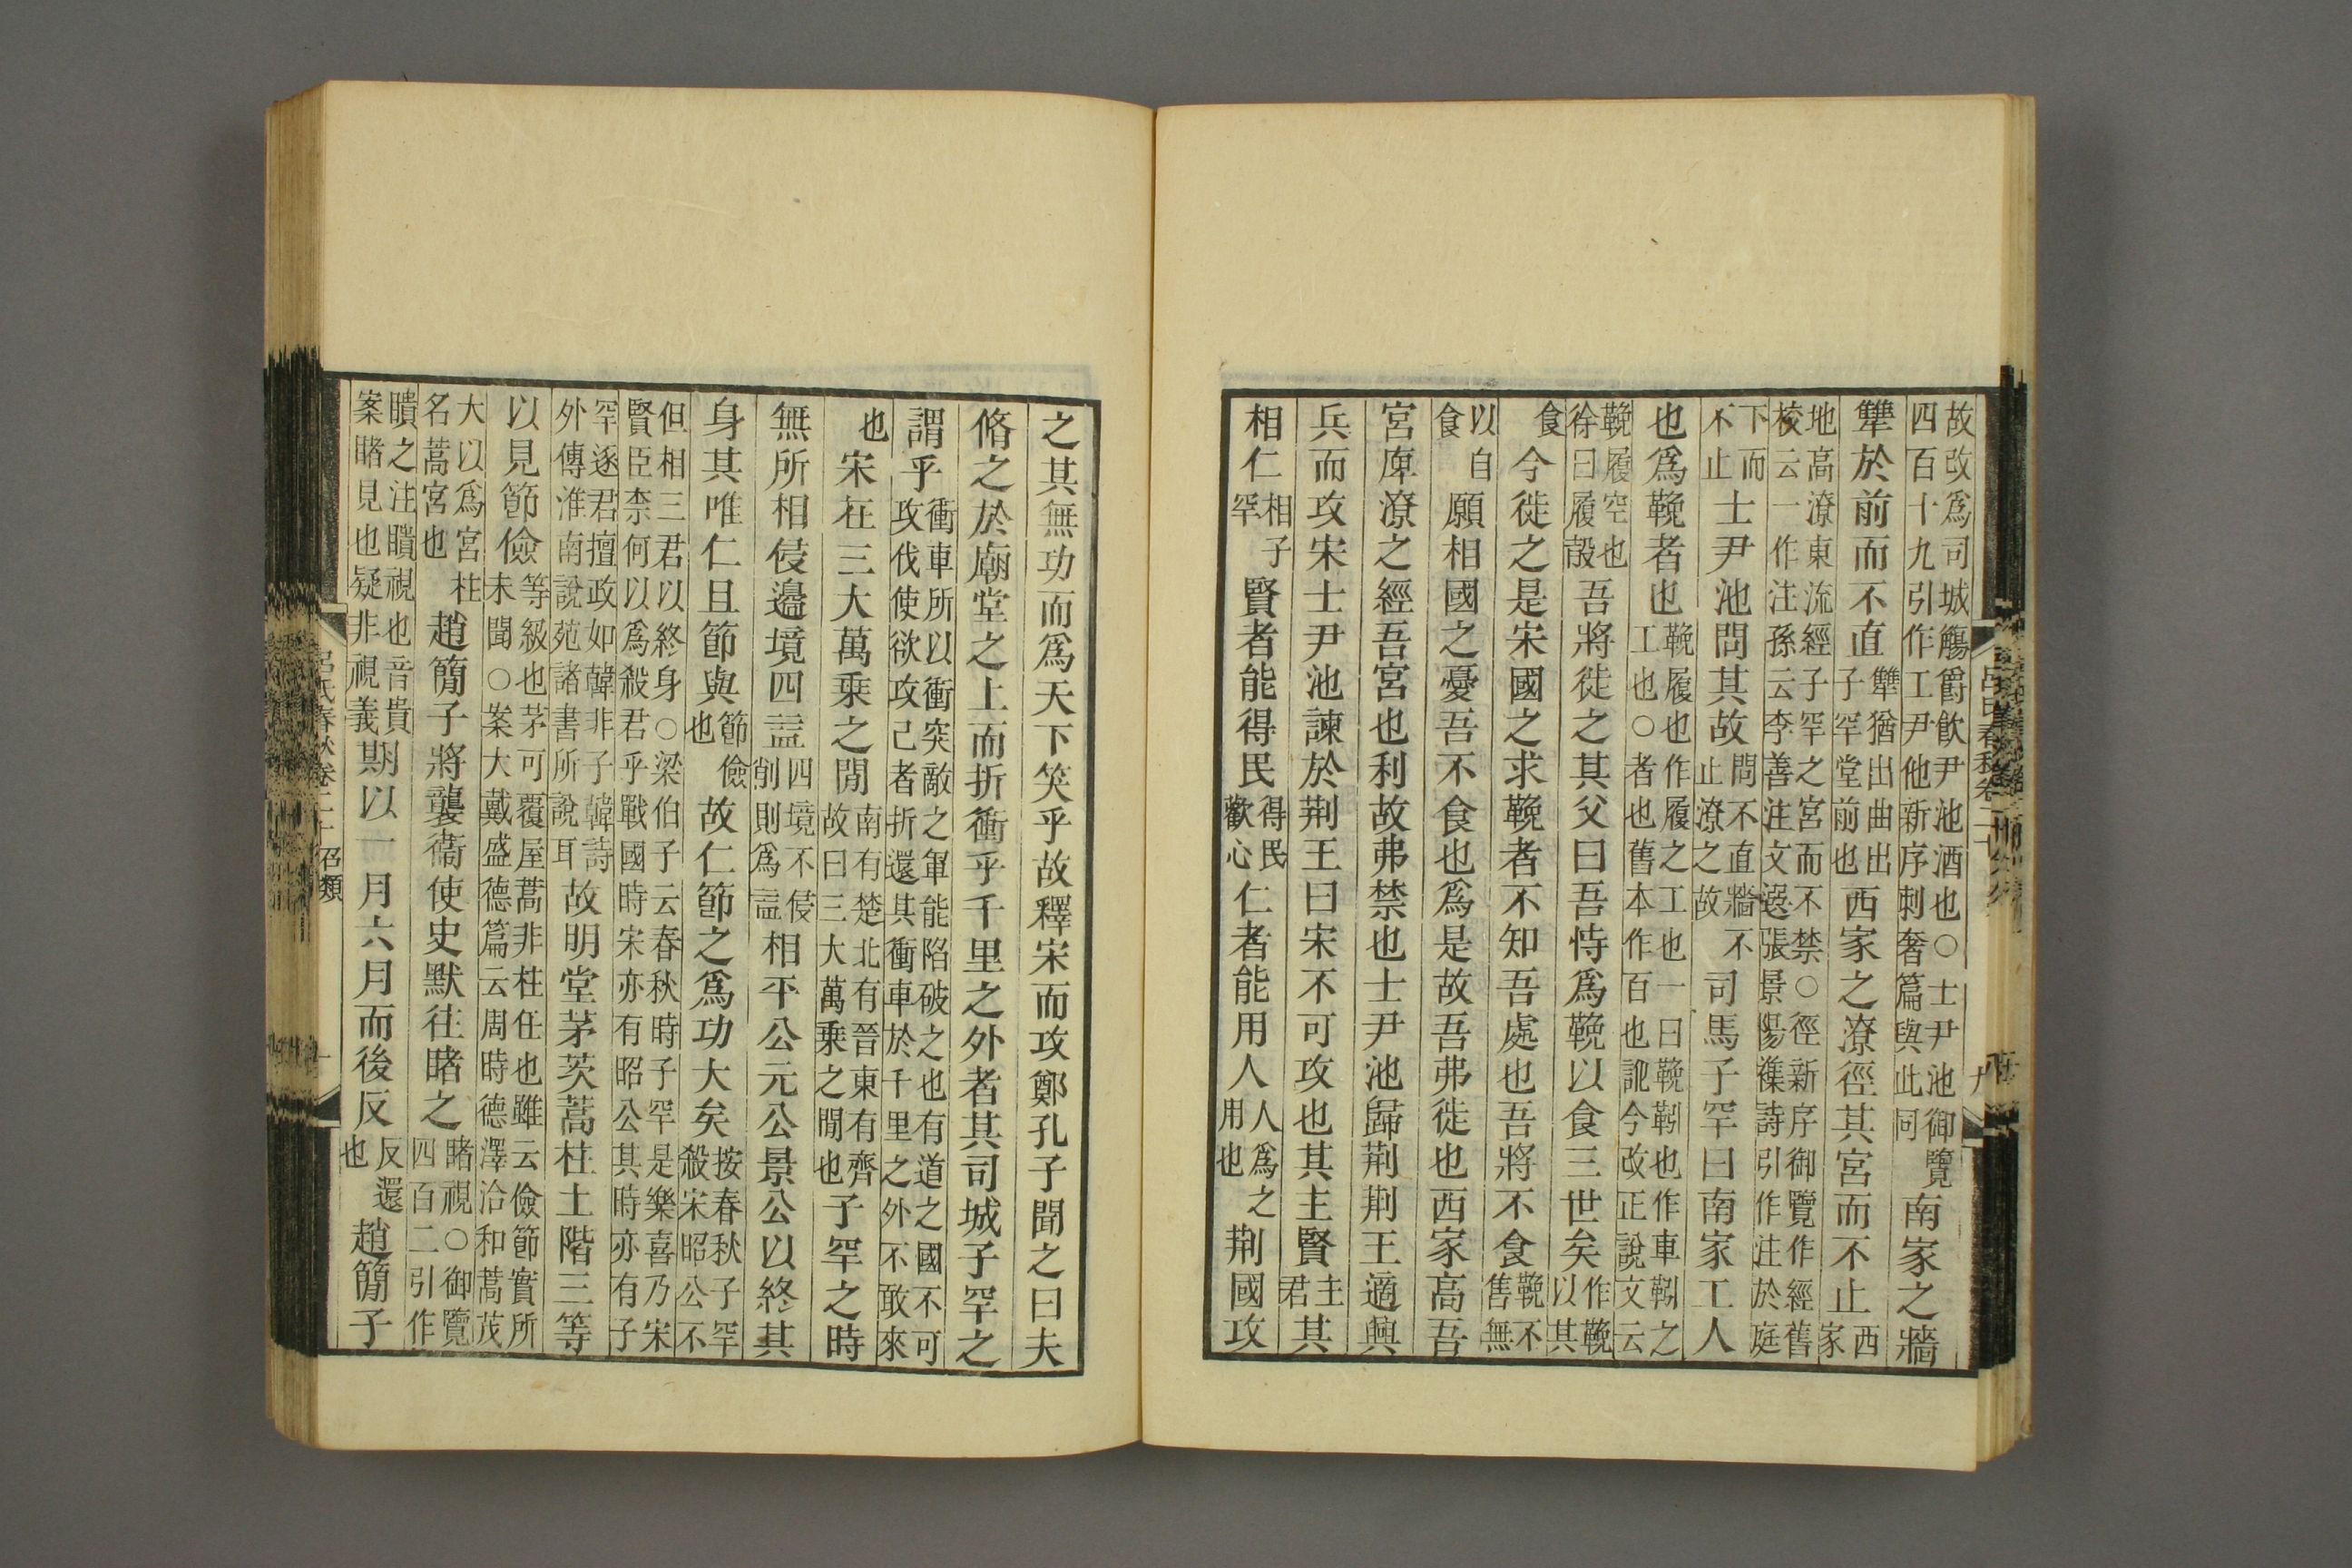 故改爲司城觴爵飲尹池酒也○士尹池御覽
四百十九引作工尹他新序刺奢篇與此同
南家之牆
犨於前而不直
犨猶出曲出
子罕堂前也
西家之潦徑其宮而不止
西
家
地高潦東流經子罕之宮而不禁○徑新序御覽作經舊
校云一作注孫云李善注文選張景陽襍詩引作注於庭
下而
不止
士尹池問其故
問不直牆不
止潦之故
司馬子罕曰南家工人
也爲鞔者也
鞔履也作履之工也一曰鞔靷也作車靷之
工也○者也舊本作百也訛今改正說文云
鞔履空也
徐曰履㲉
吾將徙之其父曰吾恃爲鞔以食三世矣
作鞔
以其
食
今徙之是宋國之求鞔者不知吾處也吾將不食
鞔不
售無
以自
食
願相國之憂吾不食也爲是故吾弗徙也西家高吾
宮庳潦之經吾宮也利故弗禁也士尹池歸荆荆王適興
兵而攻宋士尹池諫於荆王曰宋不可攻也其主賢
主
君
其
相仁
相子
罕
賢者能得民
得民
歡心
仁者能用人
人爲之
用也
荆國攻
呂氏春秋卷二十
九
之其無功而爲天下笑乎故釋宋而攻鄭孔子聞之曰夫
脩之於廟堂之上而折衝乎千里之外者其司城子罕之
謂乎
衝車所以衝突敵之軍能陷破之也有道之國不可
攻伐使欲攻己者折還其衝車於千里之外不敢來
也
宋在三大萬乘之閒
南有楚北有晉東有齊
故曰三大萬乘之閒也
子罕之時
無所相侵邊境四益
四境不侵
削則爲益
相平公元公景公以終其
身其唯仁且節與
節儉
也
故仁節之爲功大矣
按春秋子罕
殺宋昭公不
但相三君以終身○梁伯子云春秋時子罕是樂喜乃宋
賢臣柰何以爲殺君乎戰國時宋亦有昭公其時亦有子
罕逐君擅政如韓非子韓詩
外傳淮南說苑諸書所說耳
故明堂茅茨蒿柱土階三等
以見節儉
等級也茅可覆屋蒿非柱任也雖云儉節實所
未聞○案大戴盛德篇云周時德澤洽和蒿茂
大以爲宮柱
名蒿宮也
趙簡子將襲衞使史默往睹之
睹視○御覽
四百二引作
瞶之注瞶視也音貴
案睹見也疑非視義
期以一月六月而後反
反還
也
趙簡子
呂氏春秋卷二十 召類